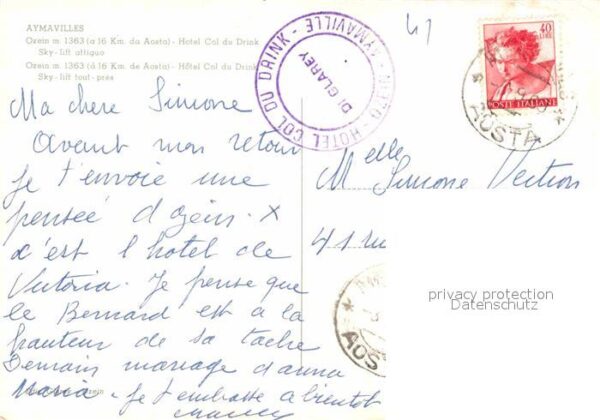 AYMAVILLES
Ozein m. 1363 (a 16 Km. da Aosta) - Hotel Col du Drink
Sky - lift attiguo
Ozein m. 1363 (à 16 Km. de Aosta) - Hôtel Col du Drink
Sky - lift tout - près
HOTEL COL DU DRINK - AYMAVILLE -
DI GLAREY
41
40
LIRE
POSTE ITALIANE
AOSTA
Ma chere Simone
Avant mon retour
je t'envoie une
pensée d'ozein. x
c'est l'hotel de
Victoria. Je pense que
le Bernard est a la
hauteur de sa tache
Demain mariage d'anna
Maria. Je t'embrasse a bientot
Melle
Simone
41 ru
AOS
privacy protection
Datenschutz